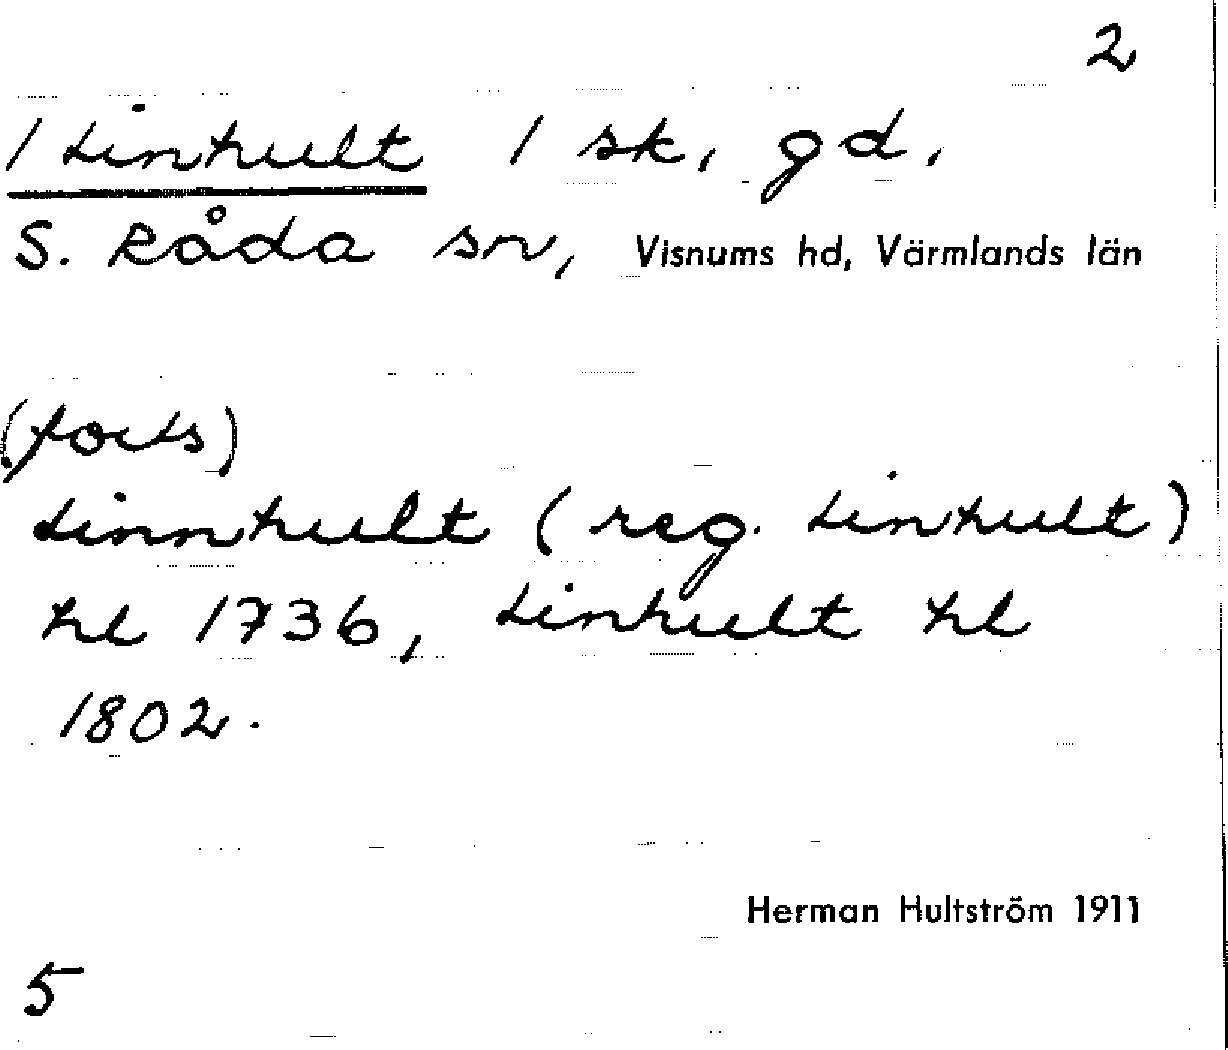 2
/ Linhult / sk, gd,
S. Råda sn, Visnums hd, Värmlands län
(forts)
Linnhult (reg. Linhult)
hl 1736, Linhult hl
1802.
Herman Hultström 1911
5